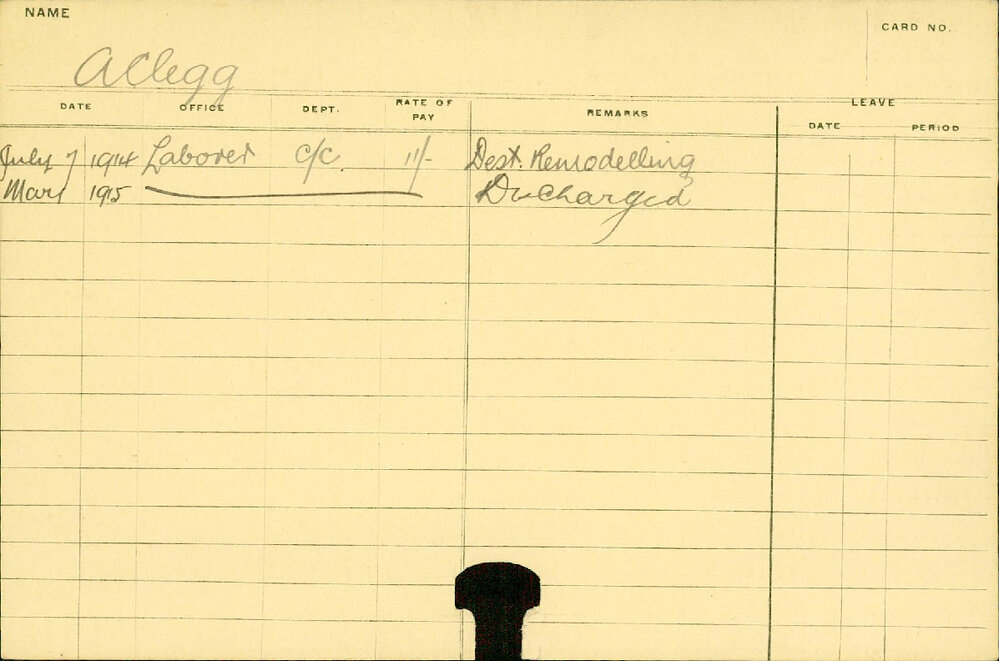 NAME
CARD NO.
A Clegg
DATE OFFICE DEPT. RATE OF PAY REMARKS LEAVE
DATE PERIOD
July 7 1914 Laborer C/C 11/- Dest. Remodelling
Mar 1915 Discharged